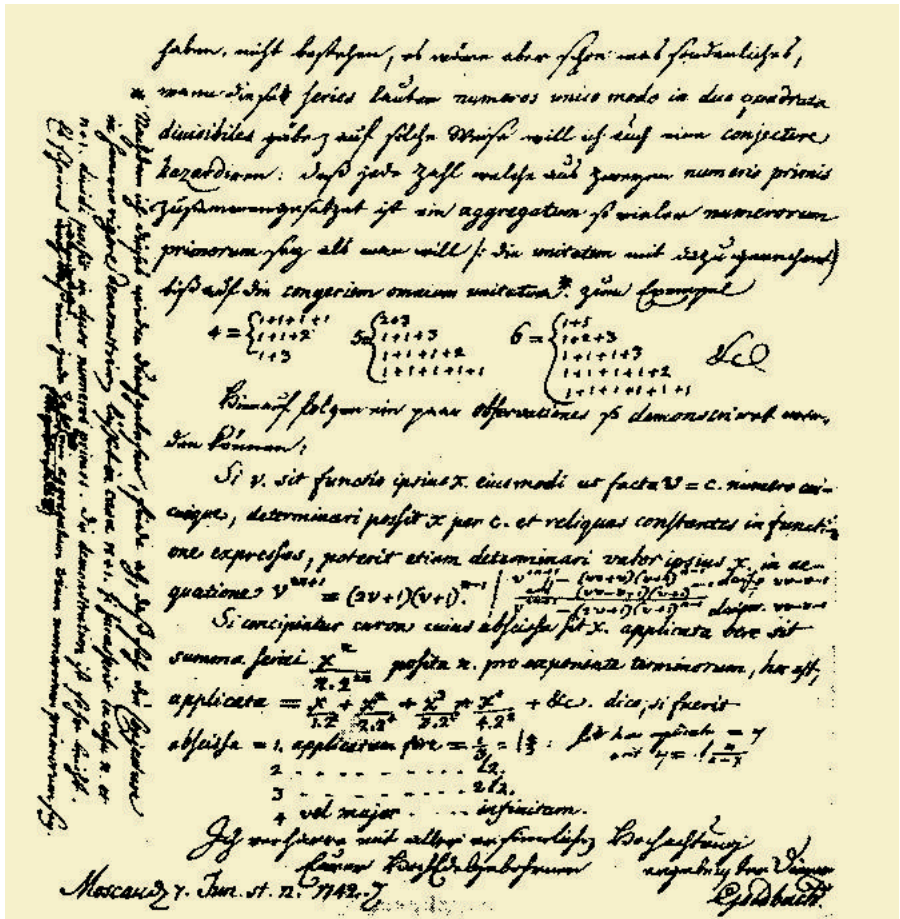 haben, nicht bestehen, es wäre aber schon was sonderliches,
wann diese series lauter numeros unico modo in duo quadrata
divisibiles gäbe auf solche Weise will ich auch eine conjecture
hazardiren: daß jede Zahl welche aus zweyen numeris primis
zusammengesetzet ist ein aggregatum so vieler numerorum
primorum sey als man will /: die unitatem mit dazu gerechnet
biß auf die congeriem omnium unitatum*. zum Exempel
4 = { 1+1+1+1 5 = { 2+3 6 = { 1+5
1+1+2 1+1+3 1+2+3
1+3 1+1+1+2 1+1+1+3
1+1+1+1+1 1+1+1+1+2
1+1+1+1+1+1 &c
Hierauf folgen ein paar observationes so demonstriret wer-
den können:
Si v. sit functio ipsius x. eiusmodi ut facta v = c. numero cui-
cunque, determinari possit x per c. et reliquas constantes in functi-
one expressas, poterit etiam determinari valor ipsius x. in ae-
quatione v^2n+1 = (2v+1)(v+1)^n-1
Si concipiatur curva cuius abscissa sit x. applicata vero sit
summa seriei x^n / n.2^2n posita n. pro exponente terminorum, hoc est,
applicata = x/1.2 + x^2/2.2^4 + x^3/3.2^ + x^4/4.2^ + &c. dico, si fuerit
abscissa = 1. applicatam fore =
2 - - - - - - - - l2.
3 - - - - - - - - 2l2.
4 vel major - - - - infinitam.
Ich verharre mit aller ersinnlichen Hochachtung
Eurer HochEdelgebohrnen ergebenster Diener
Moscau 7. Jun. st. n. 1742. Goldbach.
* Nachdem ich dieses wieder durchgelesen, finde ich, daß sich die conjecture
in summo rigore demonstriren lässet in casu n+1. si successerit in casu n. et
n+1. dividi possit in duos numeros primos. Die demonstration ist sehr leicht.
Es scheinet wenigstens, daß eine jede Zahl ein aggregatum trium numerorum primorum sey.